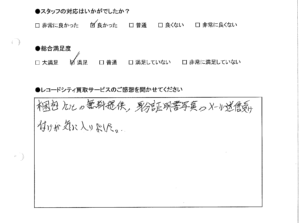 ●スタッフの対応はいかがでしたか？
□非常に良かった ☑良かった □普通 □良くない □非常に良くない
●総合満足度
□大満足 ☑満足 □普通 □満足していない □非常に満足していない
●レコードシティ買取サービスのご感想を聞かせてください
梱包 の無料提供、身分証明書写真のメール送信受
付けが気に入りました。